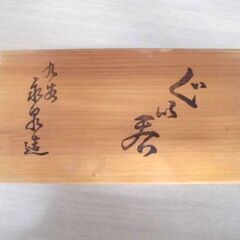 ぐい呑
九谷
泉造